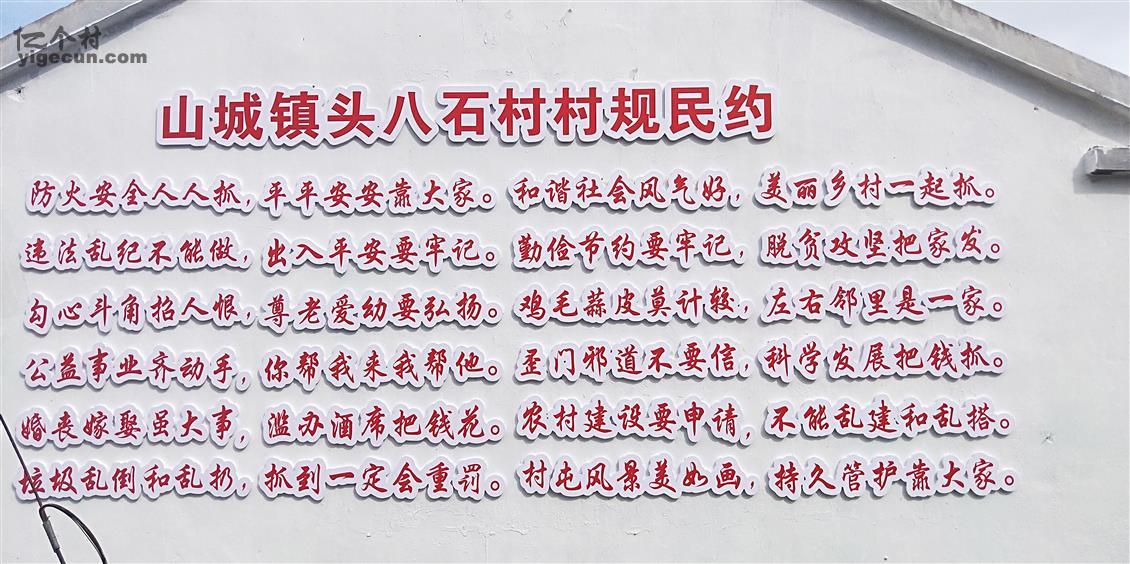 亿个村
yigecun.com
山城镇头八石村村规民约
防火安全人人抓，平平安安靠大家。和谐社会风气好，美丽乡村一起抓。
违法乱纪不能做，出入平安要牢记。勤俭节约要牢记，脱贫攻坚把家发。
勾心斗角招人恨，尊老爱幼要弘扬。鸡毛蒜皮莫计较，左右邻里是一家。
公益事业齐动手，你帮我来我帮他。歪门邪道不要信，科学发展把钱抓。
婚丧嫁娶虽大事，滥办酒席把钱花。农村建设要申请，不能乱建和乱搭。
垃圾乱倒和乱扔，抓到一定会重罚。村屯风景美如画，持久管护靠大家。